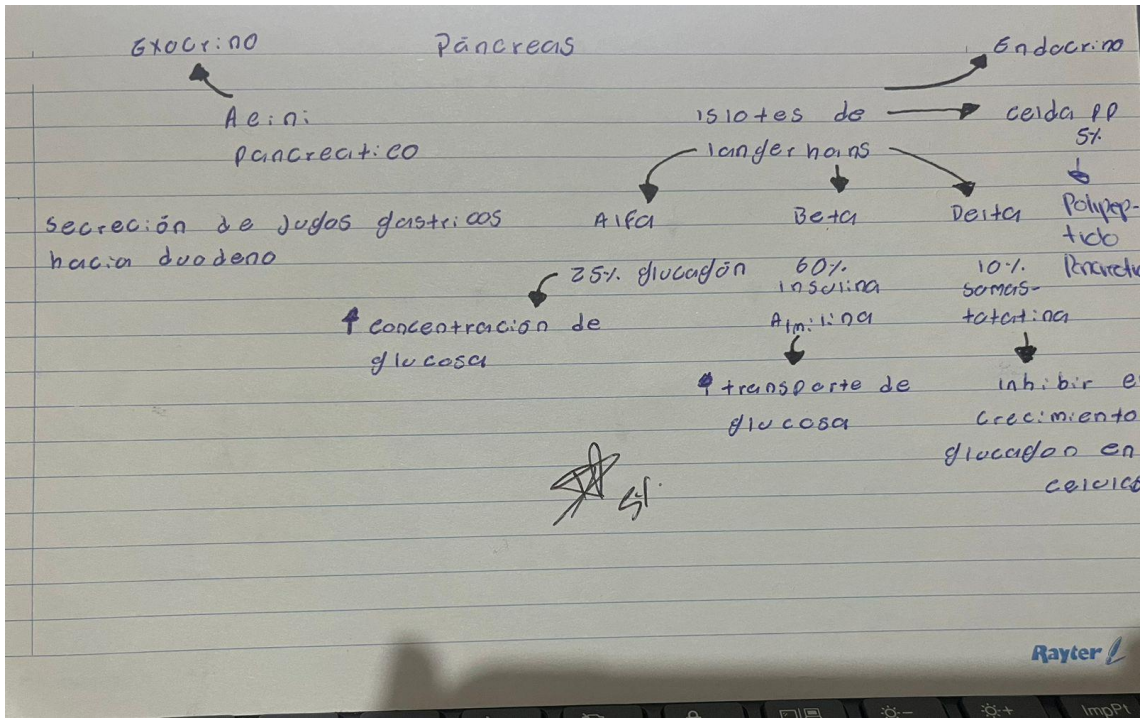 Exocrino Páncreas Endocrino
Acini
pancreatico
islotes de
langerhans
celda PP
5%
Secreción de Jugos gastricos
hacia duodeno
Alfa Beta Delta
Polipep-
tido
25% glucagón
↑ concentración de
glucosa
60%
insulina
↑ transporte de
glucosa
10%
somas-
tatatina
inhibir e
crecimiento
glucagon en
Rayter
ImpPt